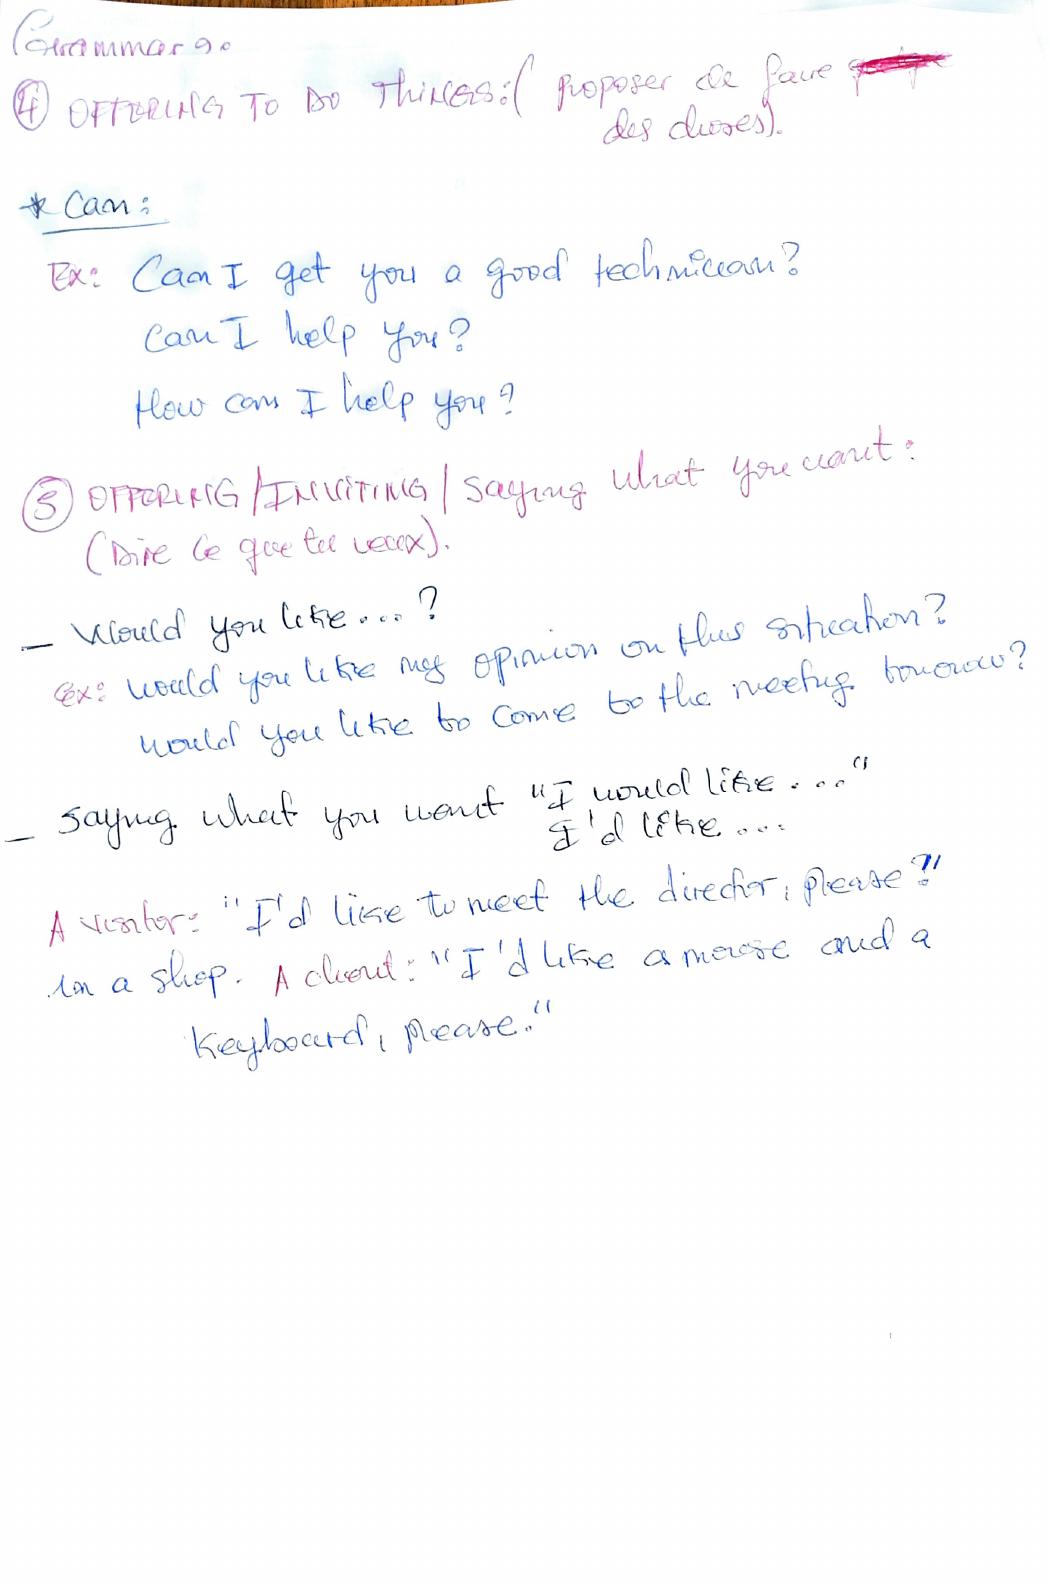 Grammar 2.
④ OFFERING TO DO THINGS: ( proposer de faire
des choses).
* Can:
Ex: Can I get you a good technician?
Can I help you?
How can I help you?
⑤ OFFERING / INVITING / saying what you want:
(Dire ce que tu veux).
_ Would you like...?
Ex: would you like my opinion on this situation?
would you like to come to the meeting tomorrow?
_ saying what you want "I would like...."
I'd like...
A visitor: "I'd like to meet the director, please?"
In a shop. A client: "I'd like a mouse and a
Keyboard, please."